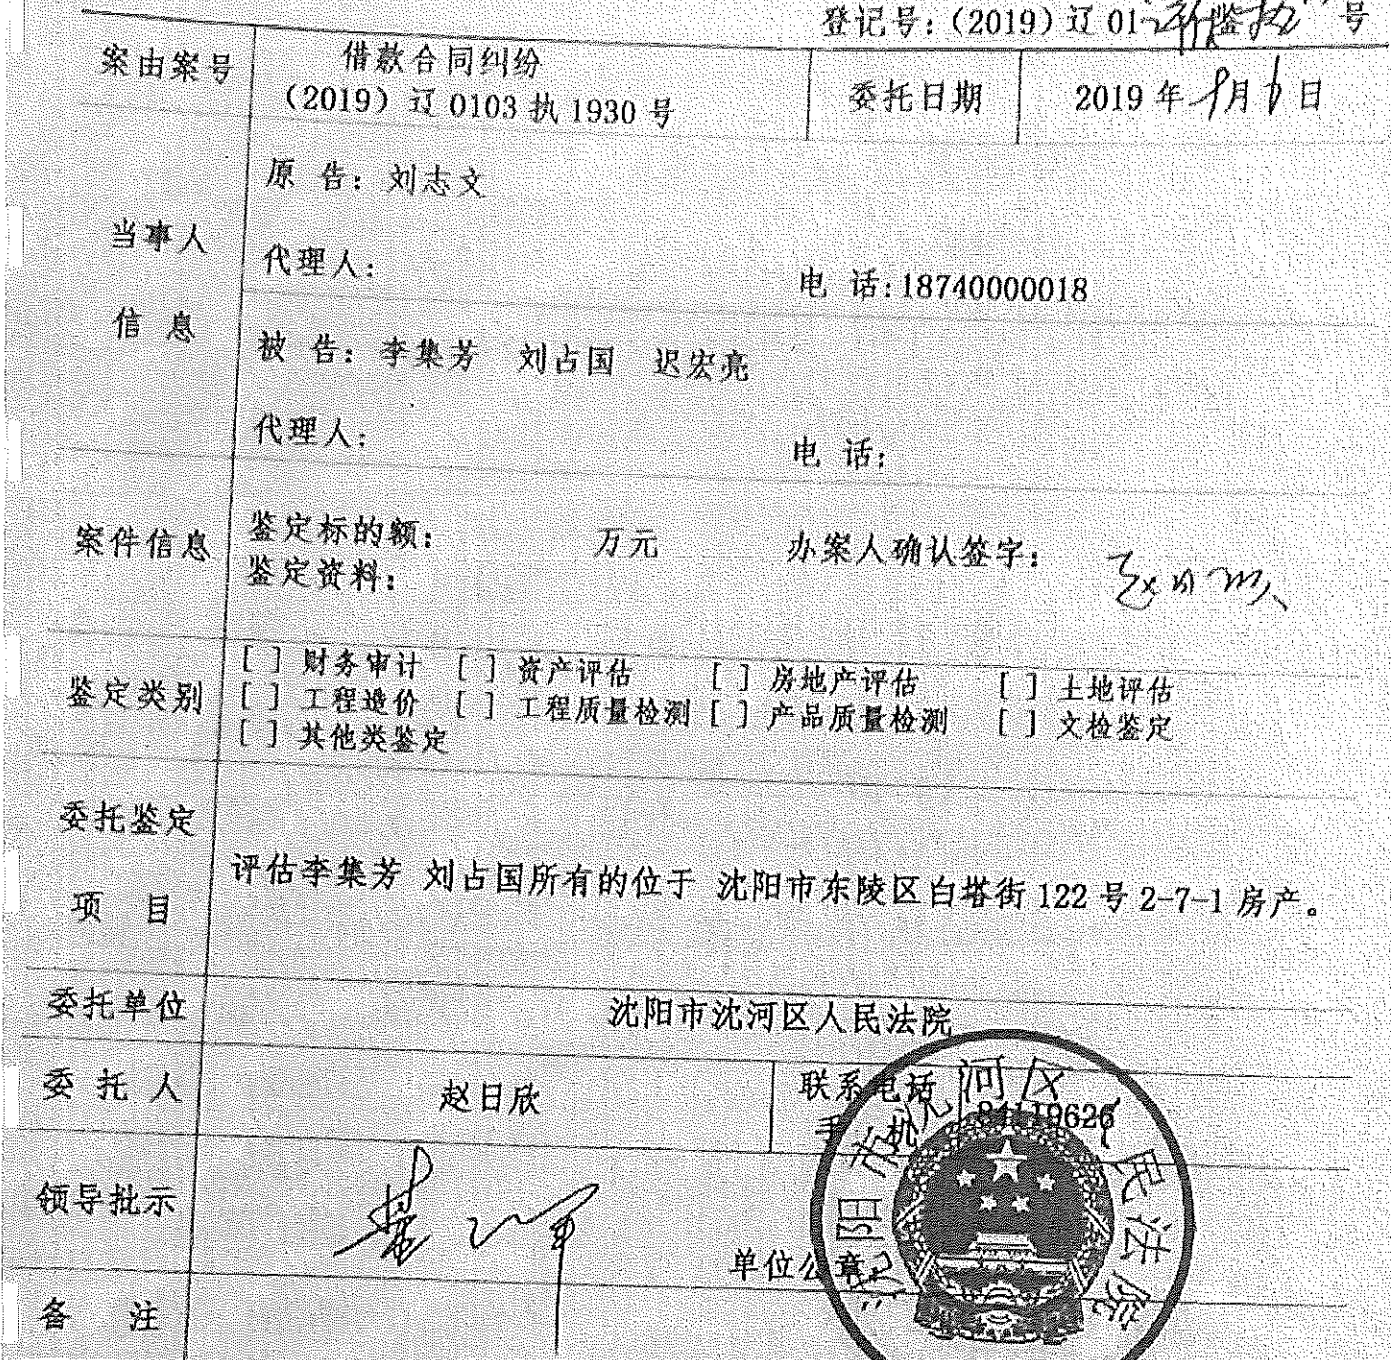 登记号:(2019)辽 01 号
案由案号
借款合同纠纷
(2019)辽 0103 执 1930 号
委托日期
2019 年 月 日
当事人
信 息
原 告: 刘志文
代理人:
电 话:18740000018
被 告: 李集芳 刘占国 迟宏亮
代理人:
电 话:
案件信息
鉴定标的额: 万元
鉴定资料:
办案人确认签字:
赵日欣
鉴定类别
[ ] 财务审计 [ ] 资产评估 [ ] 房地产评估 [ ] 土地评估
[ ] 工程造价 [ ] 工程质量检测 [ ] 产品质量检测 [ ] 文检鉴定
[ ] 其他类鉴定
委托鉴定
项 目
评估李集芳 刘占国所有的位于 沈阳市东陵区白塔街 122 号 2-7-1 房产。
委托单位
沈阳市沈河区人民法院
委 托 人
赵日欣
联系电话
手 机
84119626
领导批示
单位公章:
沈阳市沈河区人民法院
备 注